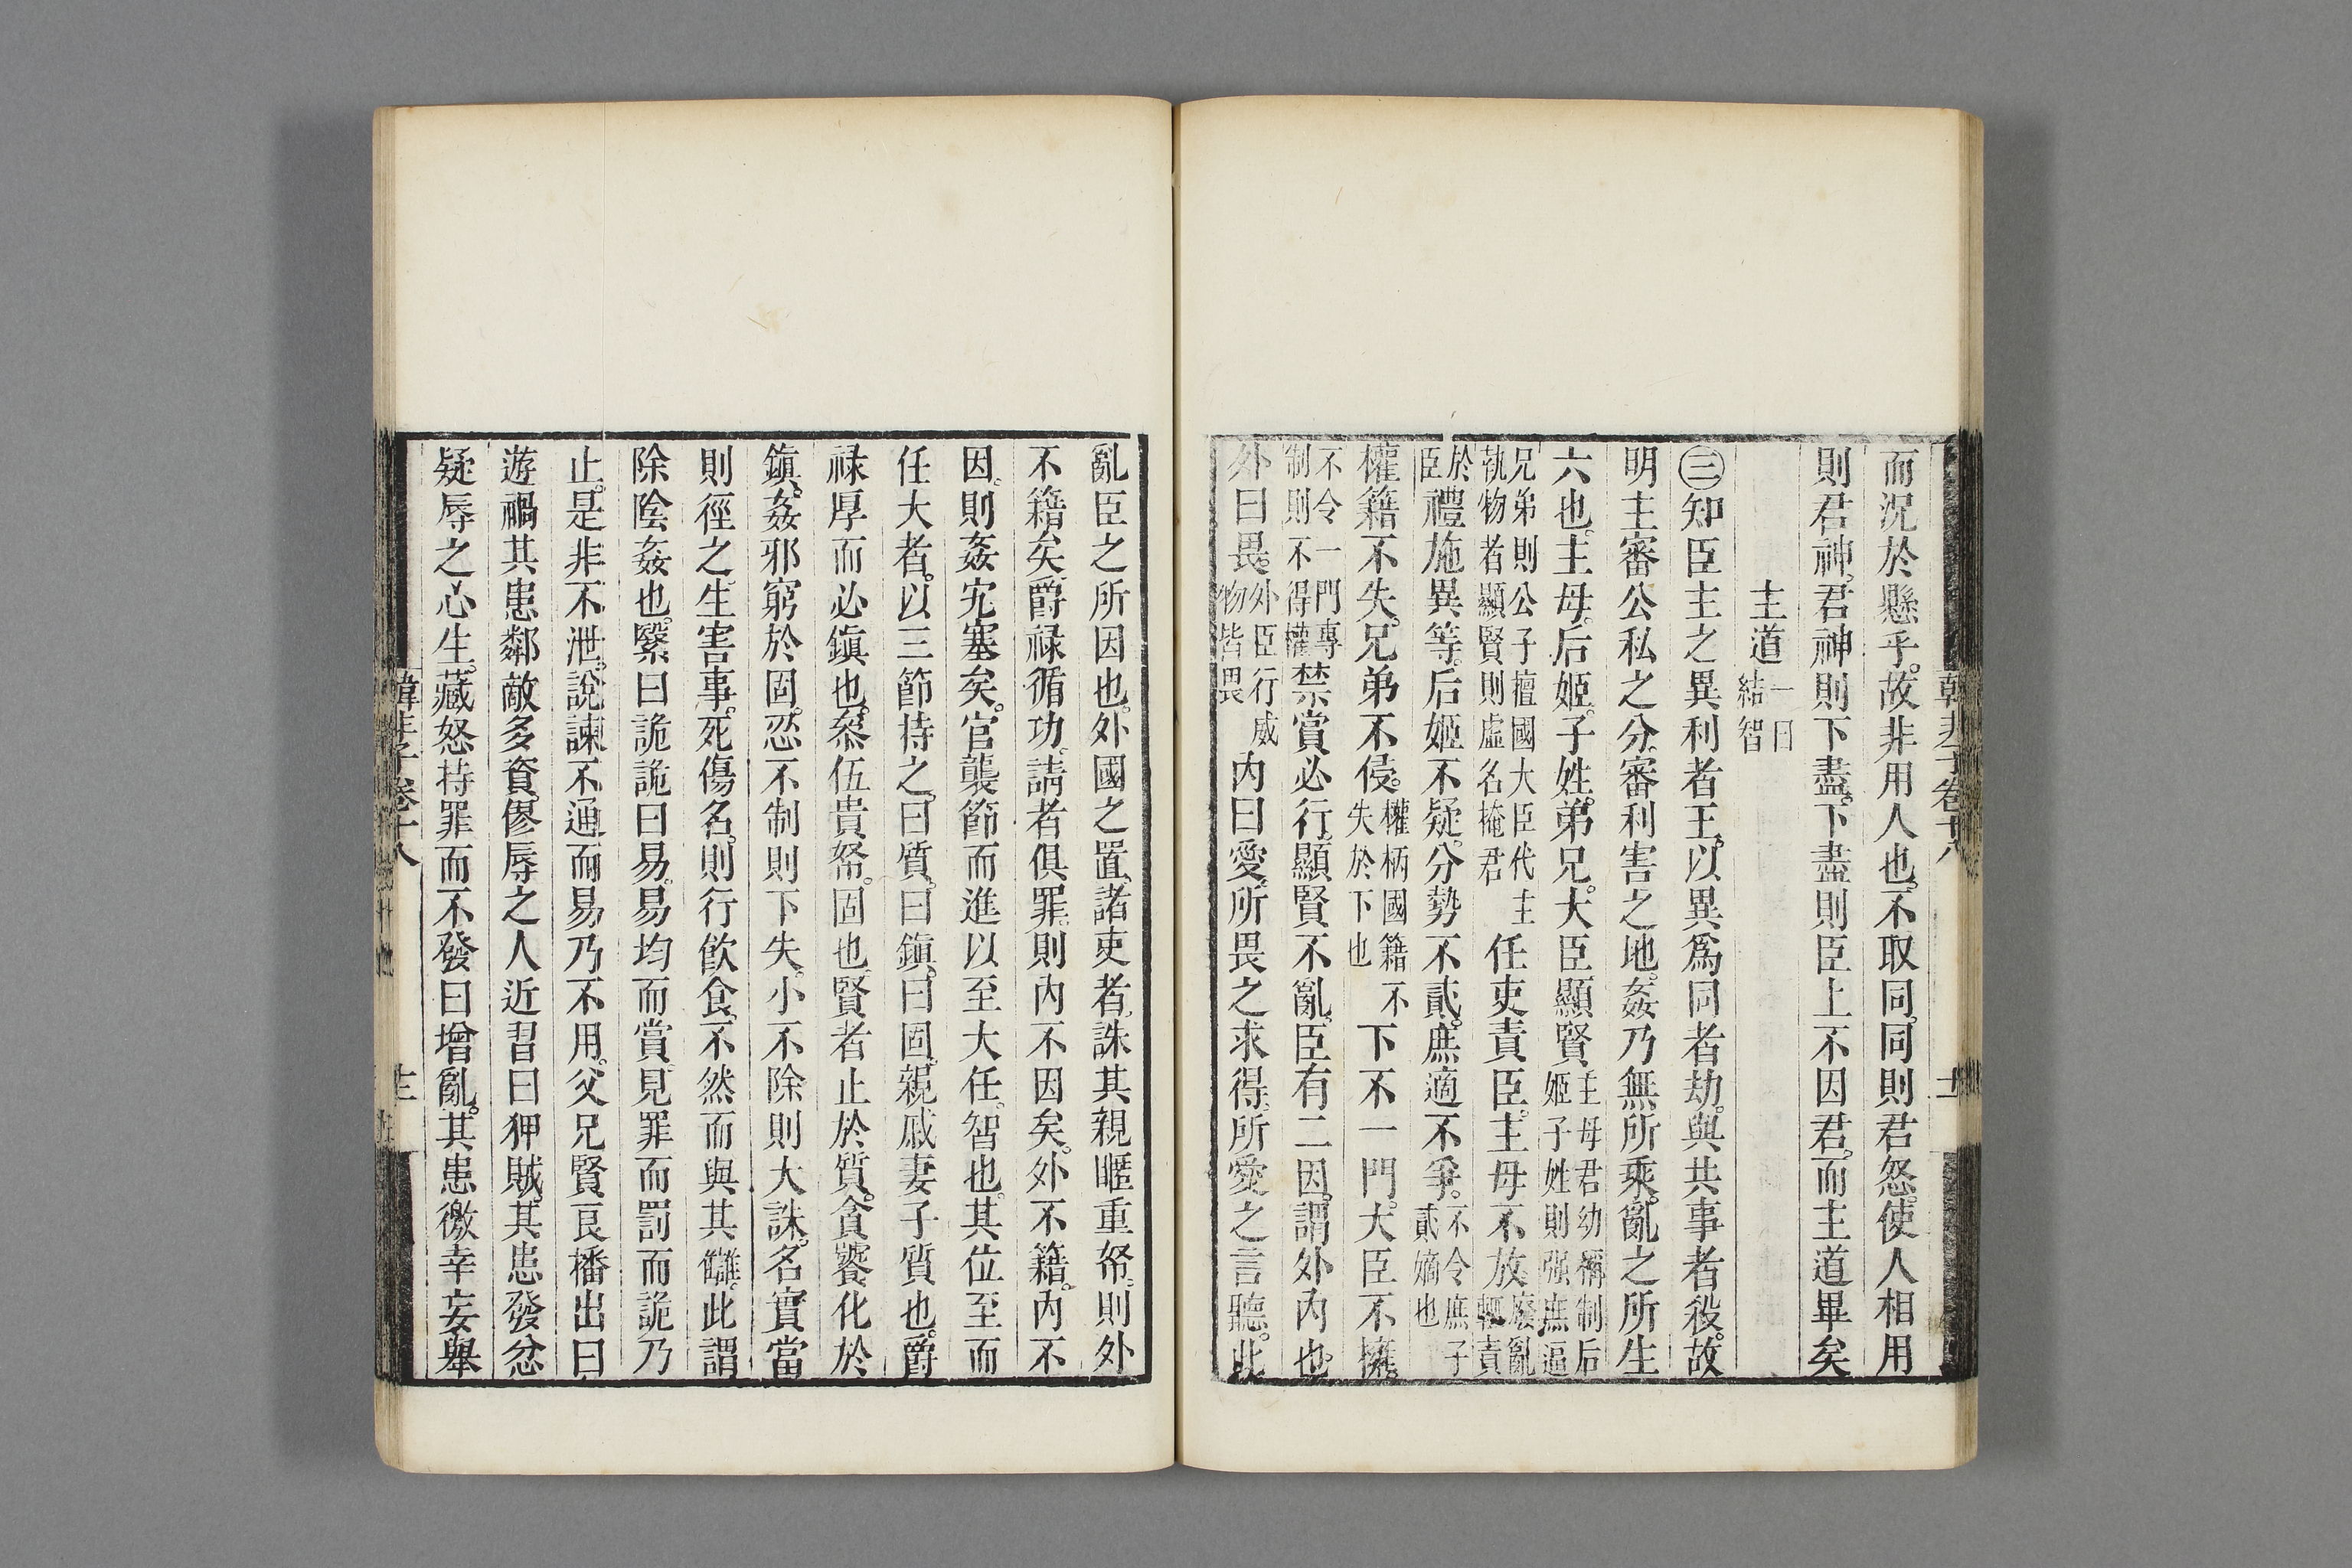 而況於懸乎。故非用人也。不取同。同則君怒。使人相用
則君神。君神則下盡。下盡則臣上不因君。而主道畢矣
主道 一曰結智
㊂知臣主之異利者王。以異爲同者劫。與共事者殺。故
明主審公私之分。審利害之地。姦乃無所乘。亂之所生
六也。主母。后姬。子姓。弟兄。大臣顯賢 主母君幼稱制后姬子姓則强庶逼
兄弟則公子擅國大臣代主執物者顯賢則虛名掩君 任吏責臣。主母不放 廢亂輒責
於臣 禮施異等。后姬不疑。分勢不貳。庶適不爭。 不令庶子貳嫡也
權籍不失。兄弟不侵。 權柄國籍不失於下也 下不一門。大臣不擁。
不令一門專制則不得權 禁賞必行。顯賢不亂。臣有二因。謂外內也。
外曰畏。 外臣行威物皆畏 內曰愛。所畏之求得。所愛之言聽。此
亂臣之所因也。外國之置諸吏者。誅其親暱重帑。則外
不籍矣。爵祿循功。請者俱罪。則內不因矣。外不籍。內不
因。則姦宄塞矣。官襲節而進以至大任。智也。其位至而
任大者。以三節持之。曰質。曰鎭。曰固。親戚妻子質也。爵
祿厚而必鎭也。叅伍貴帑。固也。賢者止於質。貪饕化於
鎭。姦邪窮於固。忍不制則下失。小不除則大誅。名實當
則徑之。生害事。死傷名。則行飮食。不然而與其讎。此謂
除陰姦也。緊曰詭。詭曰易。易均而賞。見罪而罰。而詭乃
止。是非不泄。說諫不通。而易乃不用。父兄賢良播出曰
遊禍。其患鄰敵多資。僇辱之人近習曰狎賊。其患發忿
疑辱之心生。藏怒持罪而不發曰增亂。其患徼幸妄舉
韓非子卷十八
韓非子卷十八